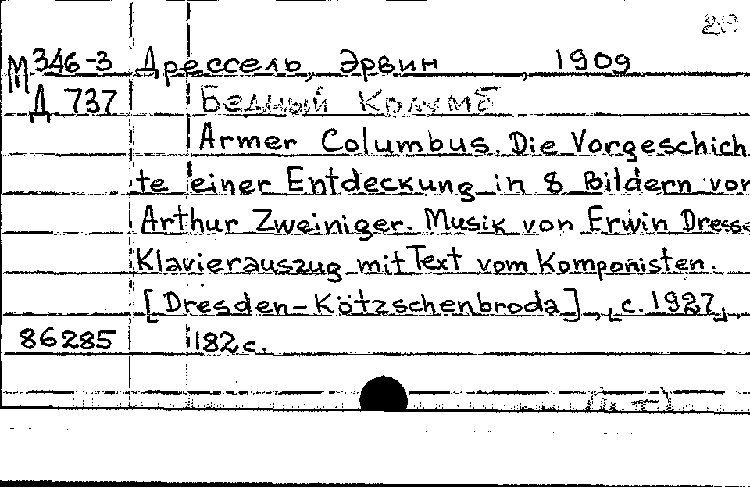 М 346-3 Дрессель, Эрвин, 1909
Д 737 Бедный Колумб
Armer Columbus. Die Vorgeschich
te einer Entdeckung in 8 Bildern von
Arthur Zweiniger. Musik von Erwin Dresse
Klavierauszug mit Text vom Komponisten.
[Dresden-Kötzschenbroda], [c. 1927],
86285 182 с.